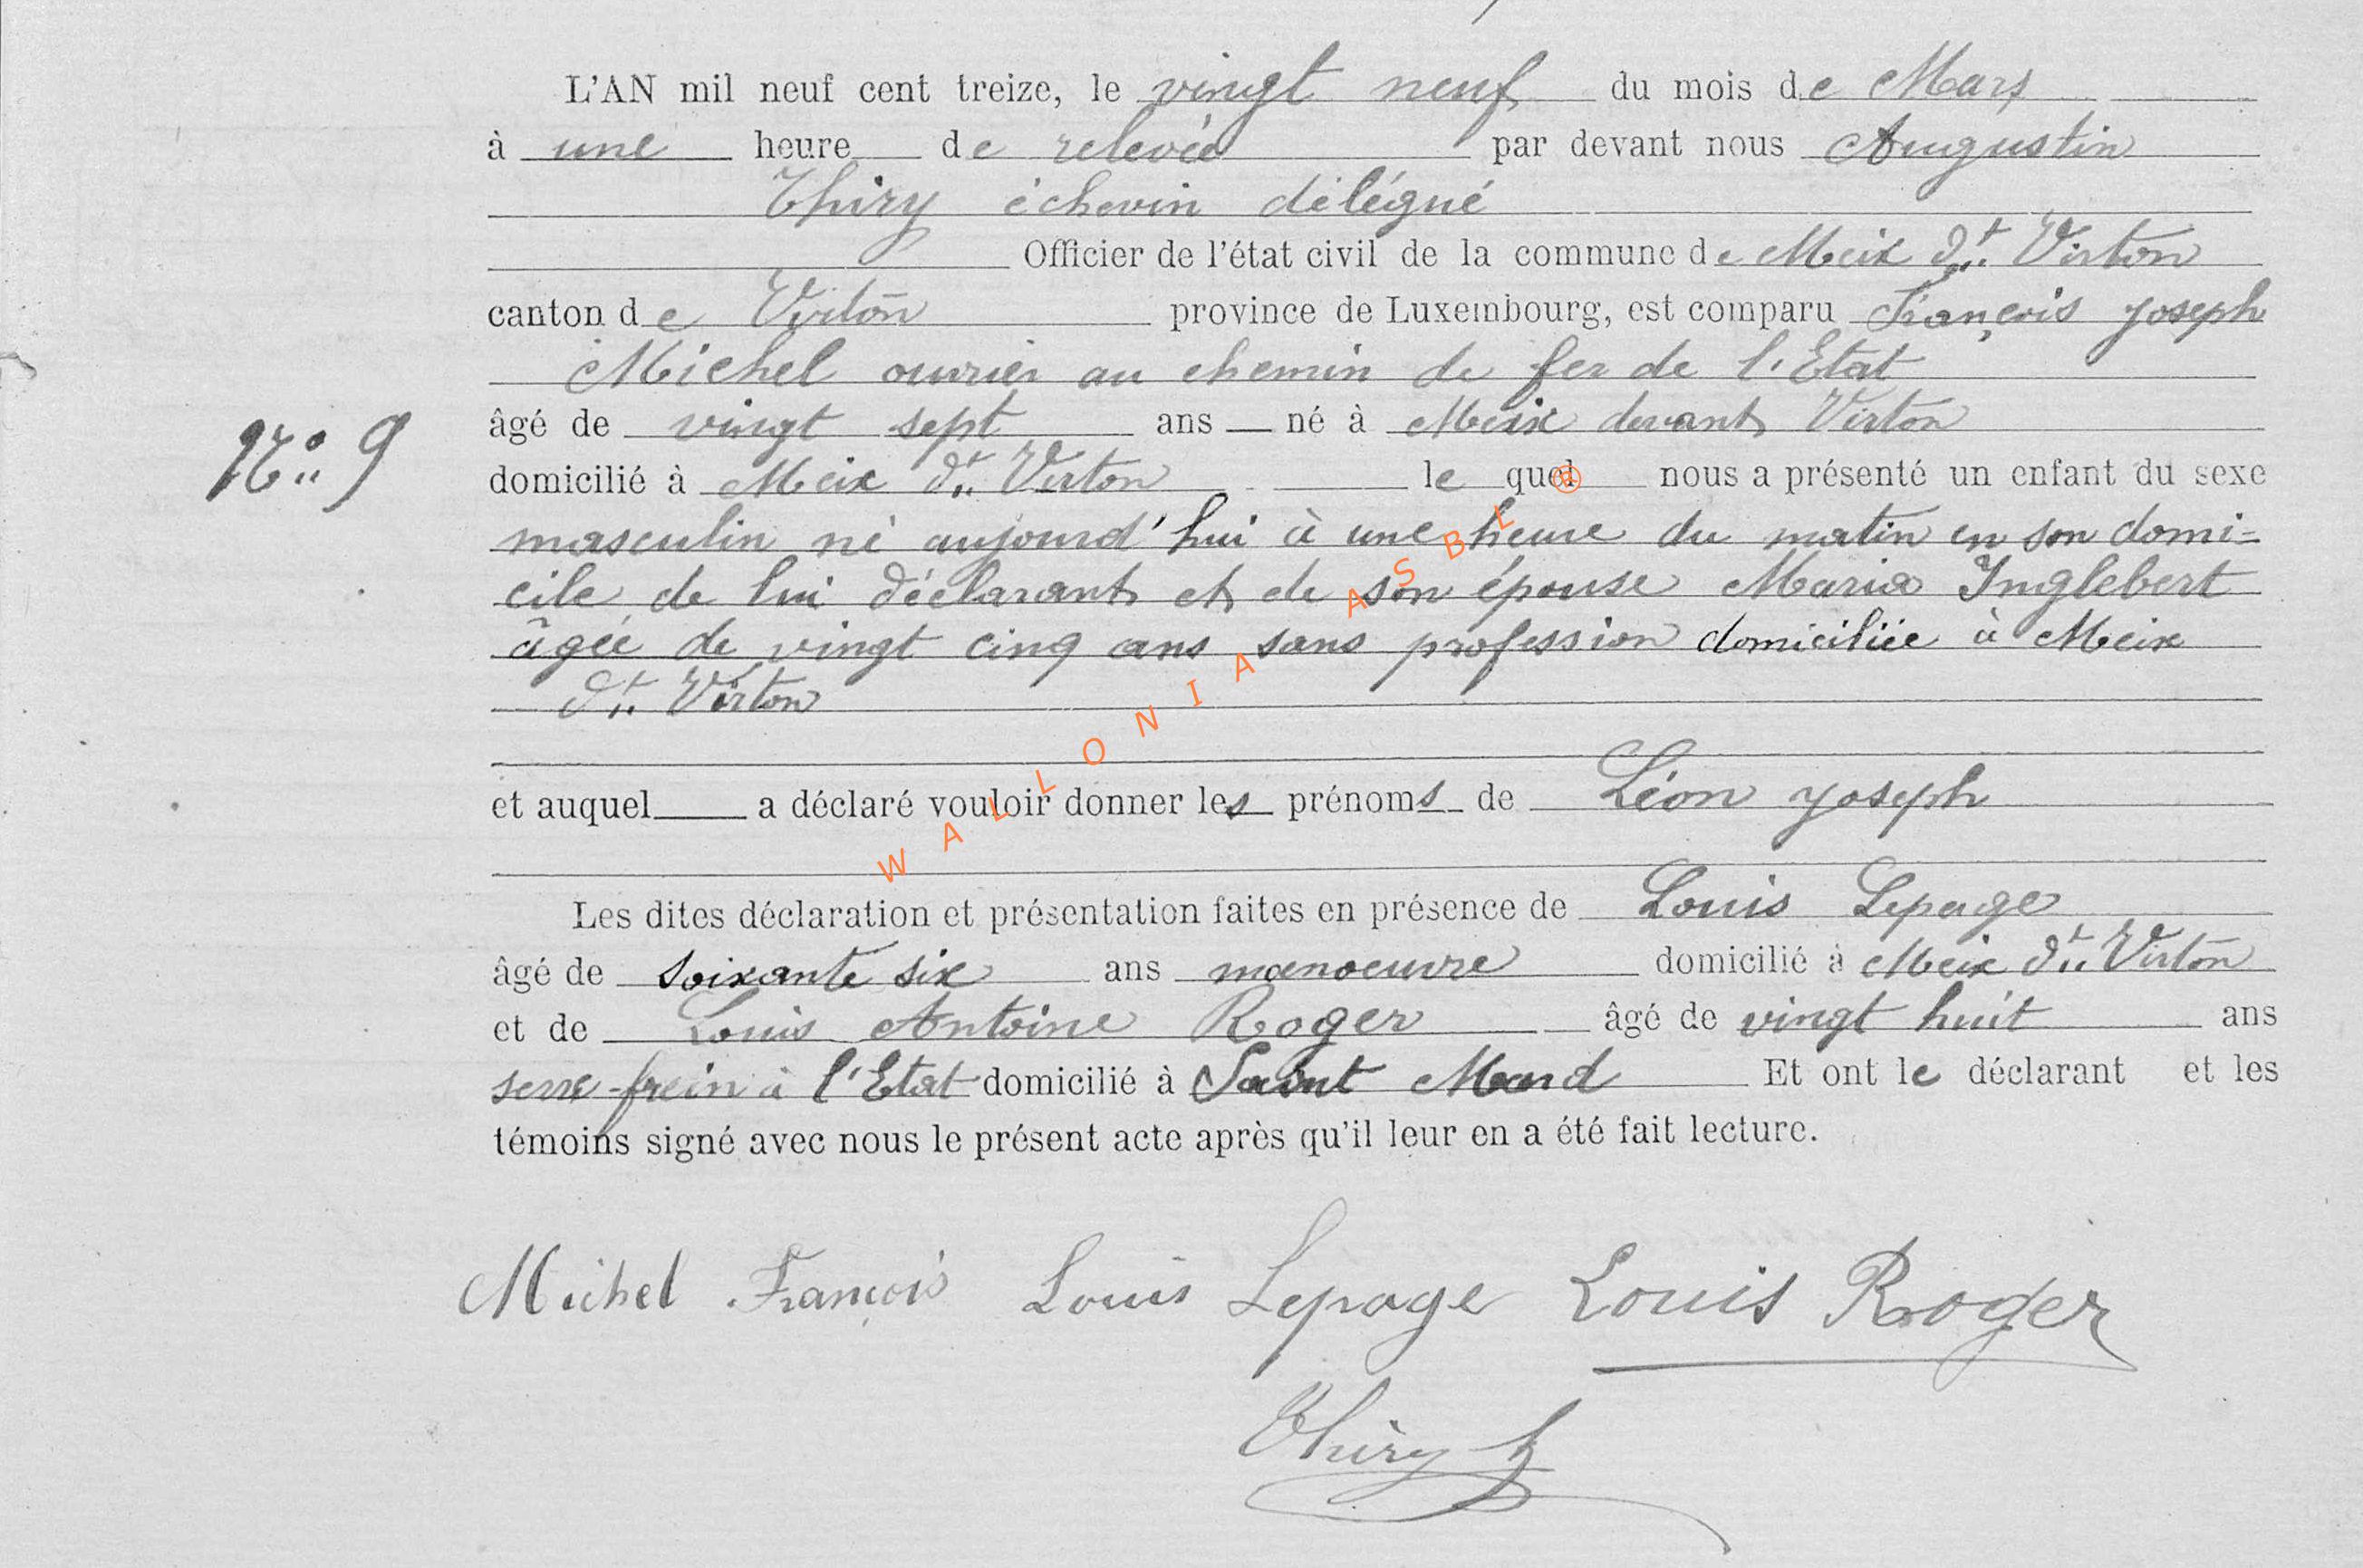 L'AN mil neuf cent treize, le vingt neuf du mois de Mars
à une heure de relevée par devant nous Augustin
Thiry échevin délégué
Officier de l'état civil de la commune de Meix dt Virton
canton de Virton province de Luxembourg, est comparu François Joseph
Michel ouvrier au chemin de fer de l'Etat
âgé de vingt sept ans né à Meix devant Virton
domicilié à Meix dt Virton le quel nous a présenté un enfant du sexe
masculin né aujourd'hui à une heure du matin en son domi=
cile de lui déclarant et de son épouse Maria Inglebert
âgée de vingt cinq ans sans profession domiciliée à Meix
dt Virton
et auquel a déclaré vouloir donner les prénoms de Léon Joseph
Les dites déclaration et présentation faites en présence de Louis Lepage
âgé de soixante six ans manoeuvre domicilié à Meix dt Virton
et de Louis Antoine Roger âgé de vingt huit ans
serre-frein à l'Etat domicilié à Saint Mard Et ont le déclarant et les
témoins signé avec nous le présent acte après qu'il leur en a été fait lecture.
No 9
Michel François Louis Lepage Louis Roger
Thiry
WALLONIA ASBL ®